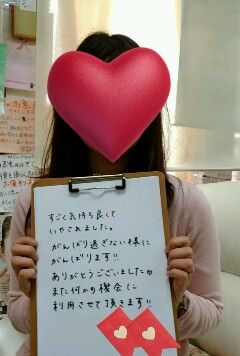 すごく気持ち良くて
いやされました。
がんばり過ぎない様に
がんばります!!
ありがとうございました
また何かの機会に
利用させて頂きます!!